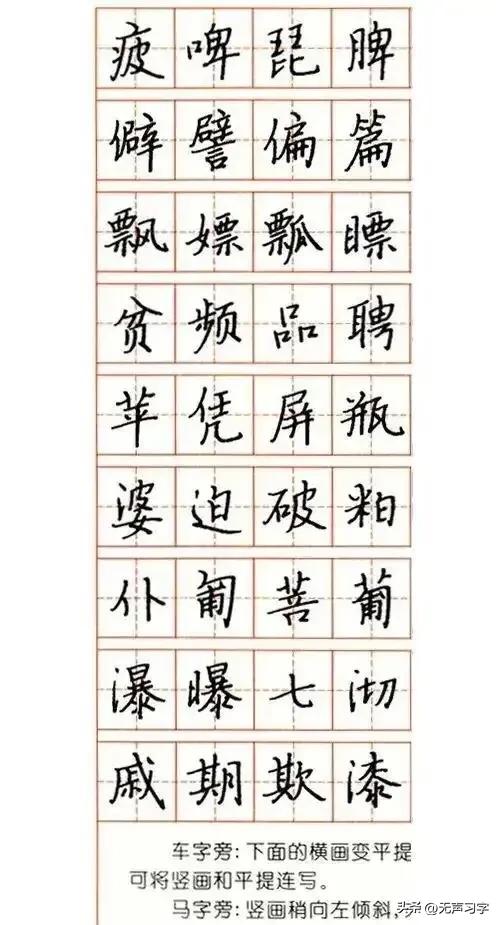 疲啤琵脾
僻譬偏篇
飘嫖瓢瞟
贫频品聘
苹凭屏瓶
婆迫破粕
仆匍菩葡
瀑曝七沏
戚期欺漆
车字旁:下面的横画变平提
可将竖画和平提连写。
马字旁:竖画稍向左倾斜,
头条@无声习字